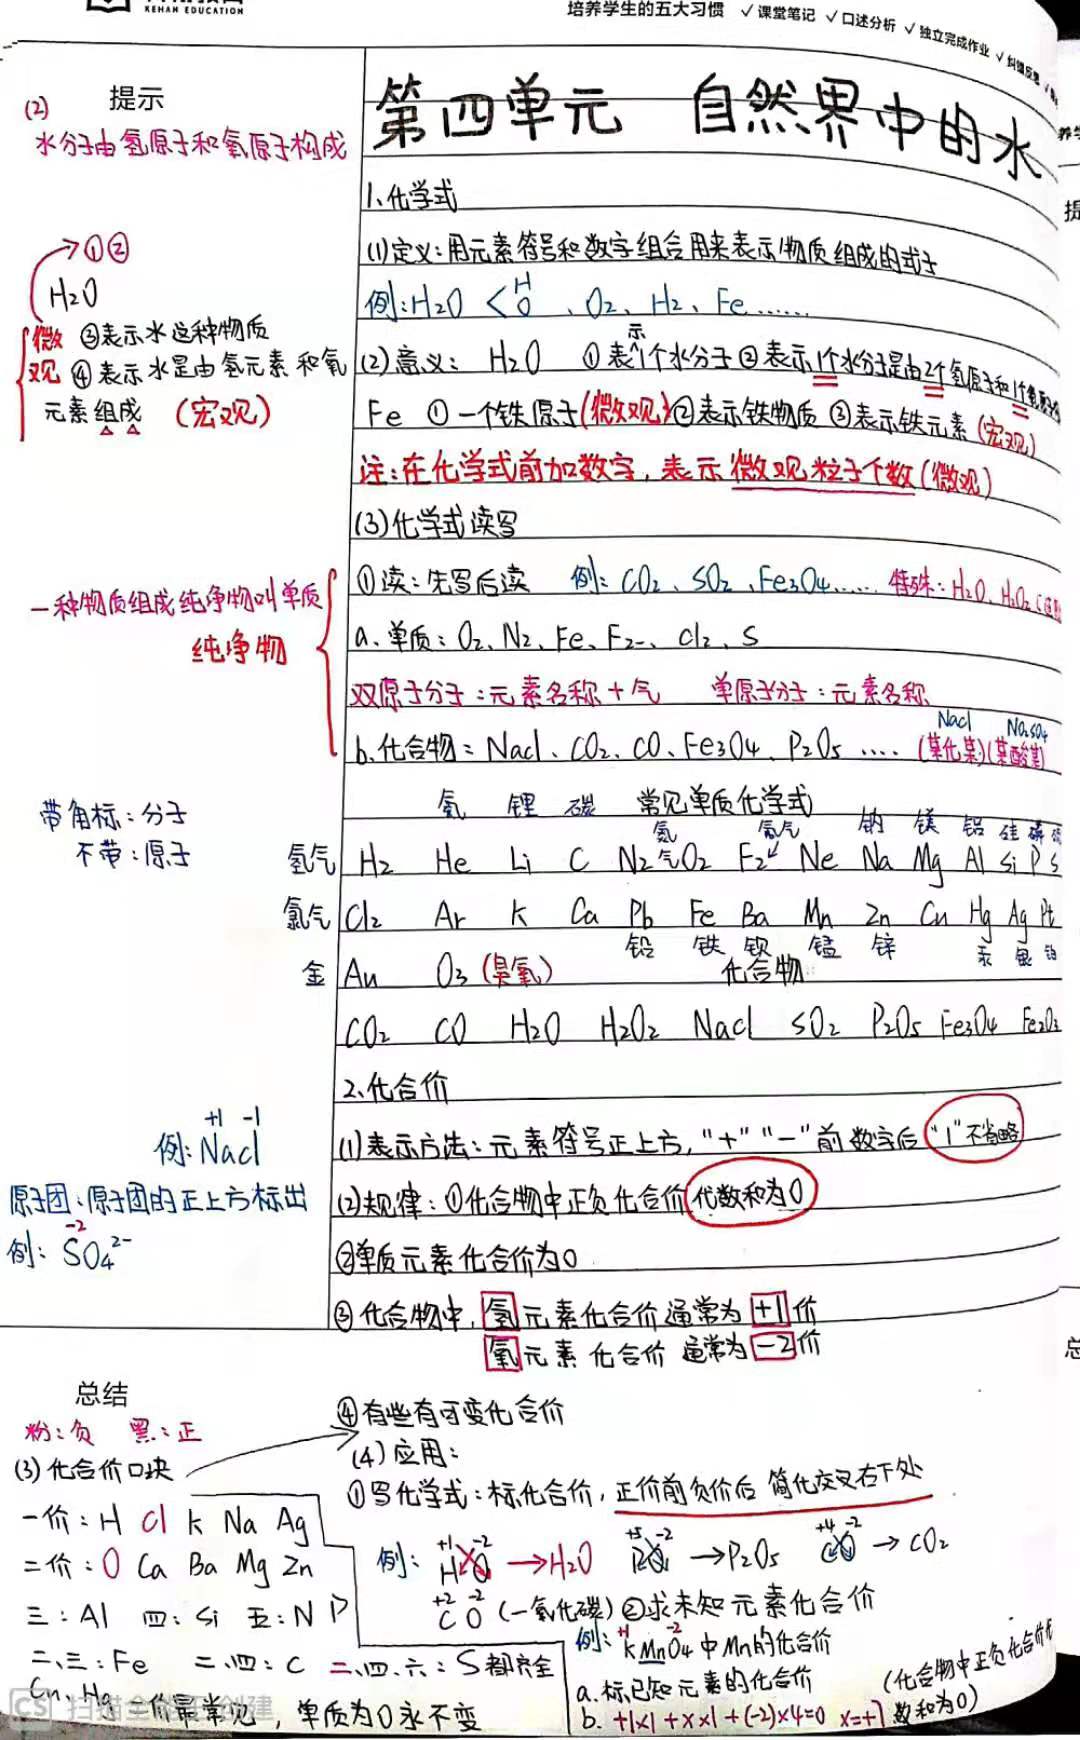 KEHAN EDUCATION
培养学生的五大习惯 √课堂笔记 √口述分析 √独立完成作业
提示
(2)
水分子由氢原子和氧原子构成
→①②
H₂O
微观
③表示水这种物质
④表示水是由氢元素和氧
元素组成 (宏观)
一种物质组成纯净物叫单质
纯净物
带角标:分子
不带:原子
例:Nacl
+1 -1
原子团:原子团的正上方标出
例:SO₄²⁻
-2
第四单元 自然界中的水
1.化学式
(1)定义:用元素符号和数字组合用来表示物质组成的式子
例:H₂O < H O 、O₂、H₂、Fe......
(2)意义: H₂O ①表示1个水分子 ②表示1个水分子是由2个氢原子和1个氧原子
Fe ①一个铁原子(微观)②表示铁物质 ③表示铁元素(宏观)
注:在化学式前加数字,表示微观粒子个数(微观)
(3)化学式读写
①读:先写后读 例:CO₂、SO₂、Fe₃O₄...... 特殊:H₂O、H₂O₂
a.单质:O₂、N₂、Fe、F₂、Cl₂、S
双原子分子:元素名称+气 单原子分子:元素名称
Nacl Na₂SO₄
b.化合物:Nacl、CO₂、CO、Fe₃O₄、P₂O₅ .... (某化某)(某酸某)
氦 锂 碳 常见单质化学式
氮气 氟气 钠 镁 铝 硅 磷 硫
氢气 H₂ He Li C N₂ O₂ F₂ Ne Na Mg Al Si P S
氯气 Cl₂ Ar K Ca Pb Fe Ba Mn Zn Cu Hg Ag Pt
铅 铁 钡 锰 锌 汞 银 铂
金 Au O₃(臭氧) 化合物
CO₂ CO H₂O H₂O₂ Nacl SO₂ P₂O₅ Fe₃O₄ Fe₂O₃
2.化合价
(1)表示方法:元素符号正上方,"+""-"前数字后"1"不省略
(2)规律:①化合物中正负化合价代数和为0
②单质元素化合价为0
③化合物中,氢元素化合价通常为+1价
氧元素化合价通常为-2价
④有些有可变化合价
总结
粉:负 黑:正
(3)化合价口诀
一价:H Cl K Na Ag
二价:O Ca Ba Mg Zn
三:Al 四:Si 五:N P
二、三:Fe 二、四:C 二、四、六:S都齐全
Cu、Hg 二价最常见,单质为0永不变
(4)应用:
①写化学式:标化合价,正价前负价后 简化交叉右下处
+1 -2 +5 -2 +4 -2
例:HO→H₂O PO→P₂O₅ CO→CO₂
+2 -2
CO(一氧化碳) ②求未知元素化合价
+1 -2
例:KMnO₄中Mn的化合价
a.标已知元素的化合价
(化合物中正负化合价代
数和为0)
b. +1×1+x×1+(-2)×4=0 x=+7
CS 扫描全能王 创建